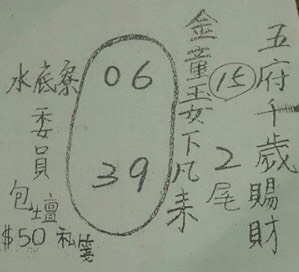 五府千歲賜財
15
2尾
金童玉女下凡來
06
39
水底寮
委員
包壇
$50 私箋